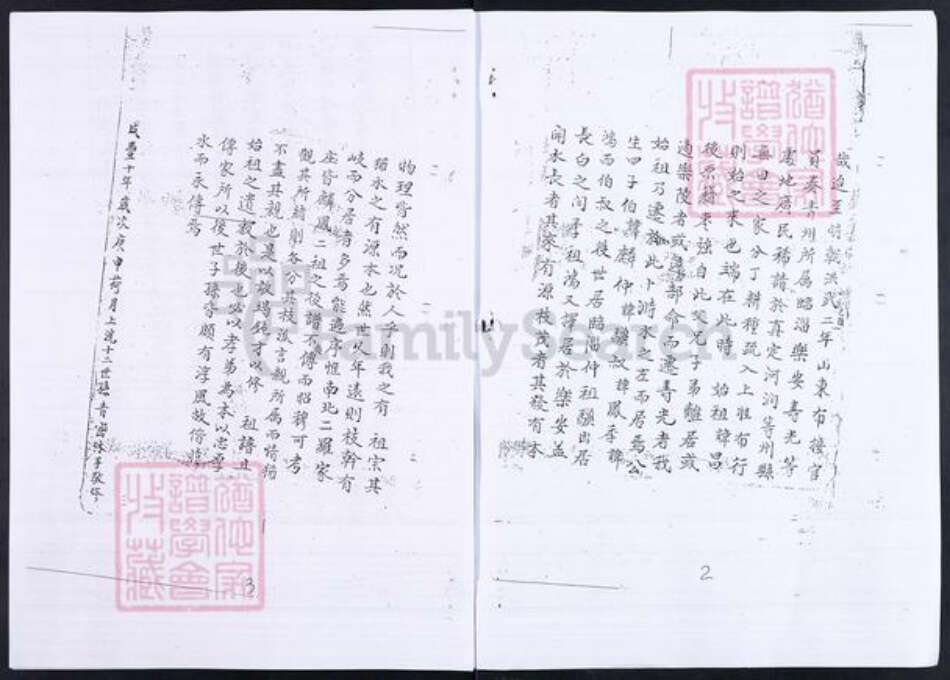 歲迨至明朝洪武二年山東布接官
員奏青州所屬臨淄樂安壽光等
處地廣民稀請於真定河澗等州縣
無田之家分丁耕種疏入上胜布行
則始之來也端在此時 始祖諱昌
後原籍棗強自此父兄子弟離居或
適樂陵者或 部命而遷壽光者我
始祖乃遷於此卜濟水之左而居焉公
生四子伯諱麟仲諱驥叔諱鳳季諱
鴻而伯叔之後世居臨淄仲祖驥出居
長白之間季祖鴻又擇居於樂安益
聞水長者其家有源枝茂者其發有本
2
物理皆然而况於人乎則我之有 祖宗其
猶水之有源本也然世以年遠則枝幹有
岐而分居者多焉能過序惟南北二羅家
庄皆麟鳳二祖之後譜不傳而昭穆可考
觀其所緒則各分其枝歲言親所屬而情
不盡其親也是以故以修 祖譜且
始祖之遺教於後也必以孝弟為本以忠厚
傳家所以後世子孫亦頗有淳風故脩
水而永傳焉
咸豐十年歲次庚申荷月上浣十二世孫
3
猶他家譜學會收藏
猶他家譜學會收藏
FamilySearch